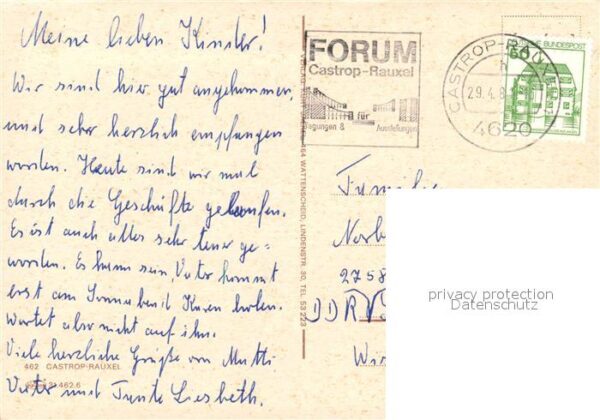 Meine lieben Kinder!
Wir sind hier gut angekommen,
und sehr herzlich empfangen
worden. Heute sind wir mal
durch die Geschäfte gelaufen.
Es ist auch alles sehr teuer ge-
worden. Es kann sein, Vater kommt
erst am Sonnabend Karen holen.
Wartet aber nicht auf ihn.
Viele herzliche Grüße von Mutti
Vater und Tante Liesbeth.
462 CASTROP-RAUXEL
462.6
464 WATTENSCHEID, LINDENSTR. 30, TEL. 53 223
FORUM
Castrop-Rauxel
für
Tagungen & Ausstellungen
CASTROP-RAUXEL
29.4.8
4620
60
BUNDESPOST
Familie
Norb
2758
DDR
Wis
privacy protection
Datenschutz